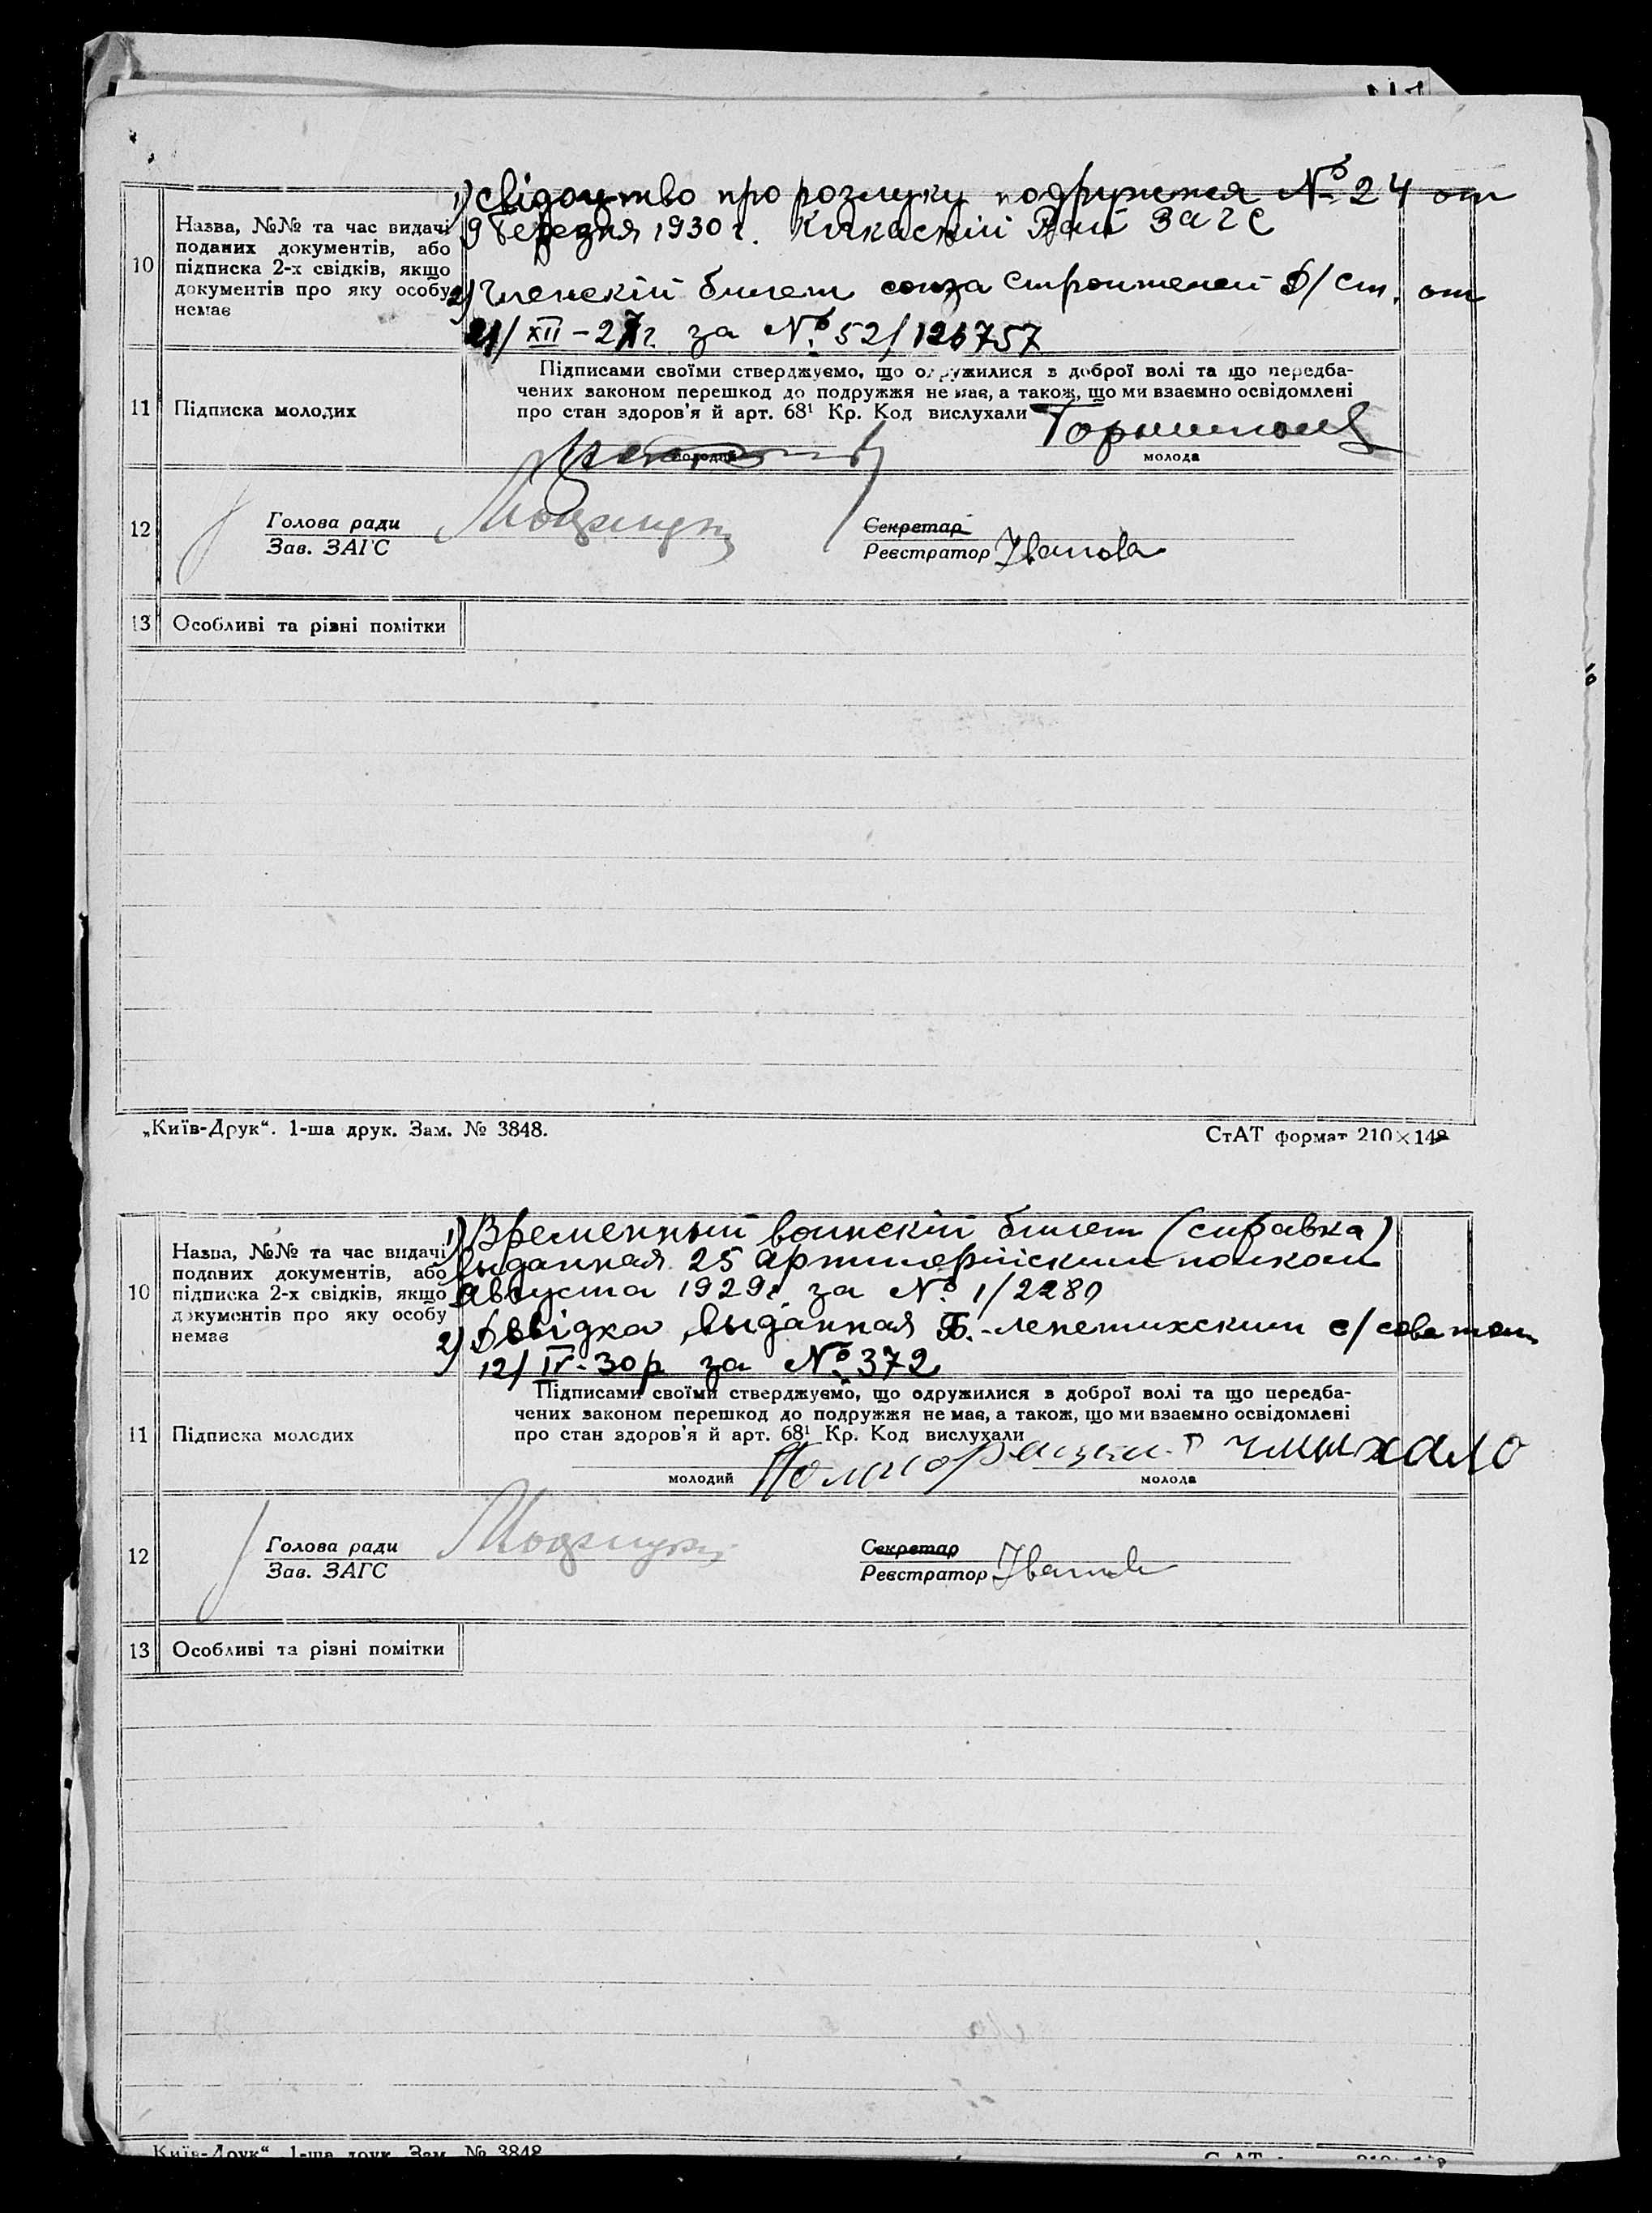 1) Свідоцтво про розлуку подружжя № 24 от
10
Назва, №№ та час видачі
поданих документів, або
підписка 2-х свідків, якщо
документів про яку особу
немає
9 березня 1930 г. Кичкаский Рай Загс
2) Членскій билет союза строителей Д/ст. от
21/XII-27 г. за № 52/126757
11
Підписка молодих
Підписами своїми стверджуємо, що одружилися з доброї волі та що передба-
чених законом перешкод до подружжя не має, а також, що ми взаємно освідомлені
про стан здоров'я й арт. 68¹ Кр. Код вислухали
молодий
молода
12
Голова ради
Зав. ЗАГС
Секретар
Реєстратор Іванова
13
Особливі та різні помітки
„Київ-Друк“. 1-ша друк. Зам. № 3848.
СтАТ формат 210×148
1) Временный воинскій билет (справка)
10
Назва, №№ та час видачі
поданих документів, або
підписка 2-х свідків, якщо
документів про яку особу
немає
выданная 25 артилерійским полком
Августа 1929 г. за № 1/2280
2) Довідка выданная Б.-лепетихским с/советом
12/IV-30 р за № 372
11
Підписка молодих
Підписами своїми стверджуємо, що одружилися з доброї волі та що передба-
чених законом перешкод до подружжя не має, а також, що ми взаємно освідомлені
про стан здоров'я й арт. 68¹ Кр. Код вислухали
молодий
молода
12
Голова ради
Зав. ЗАГС
Секретар
Реєстратор Іванова
13
Особливі та різні помітки
Київ-Друк“. 1-ша друк. Зам. № 3848